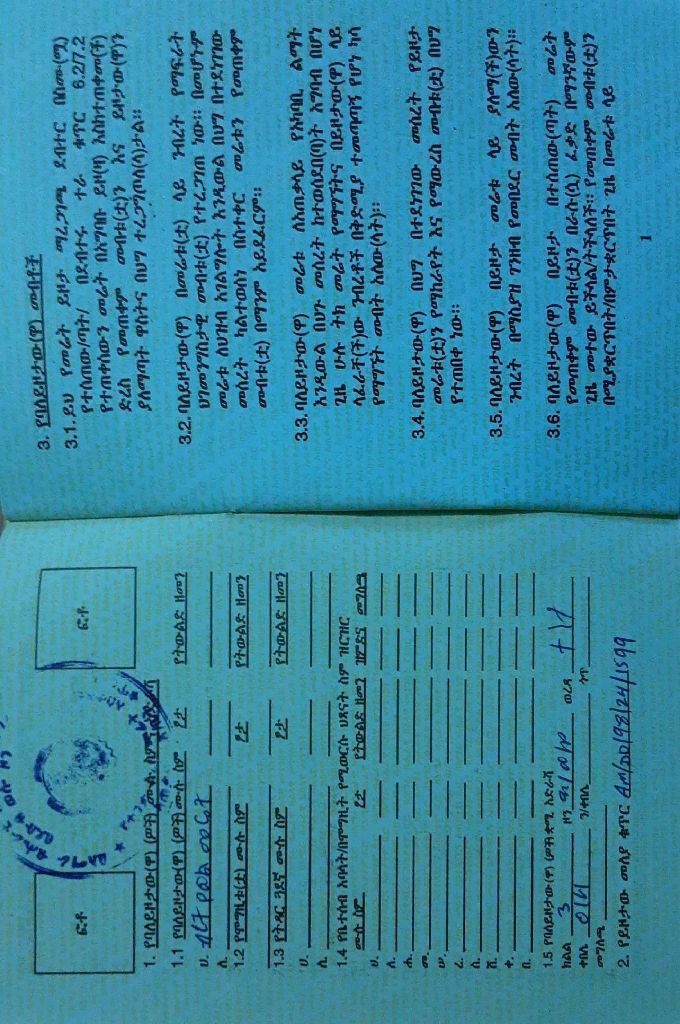 ፎቶ
ፎቶ
1. የባለይዞታው(ዋ) (ዎች) ሙሉ ስም
1.1 የባለይዞታው(ዋ) (ዎች) ሙሉ ስም የታ የትውልድ ዘመን
ሀ.
ለ.
1.2 የሞግዚቱ(ቷ) ሙሉ ስም የታ የትውልድ ዘመን
1.3 የትዳር ጓደኛ ሙሉ ስም የታ የትውልድ ዘመን
ሀ.
ለ.
1.4 የቤተሰብ አባላት/በሞግዚት የሚወርሱ ህጻናት ስም ዝርዝር
ሙሉ ስም የታ የትውልድ ዘመን ዝምድና መግለጫ
ሀ.
ለ.
ሐ.
መ.
ሠ.
ረ.
ሰ.
ሸ.
ቀ.
በ.
1.5 የባለይዞታው(ዋ) (ዎች) ቋሚ አድራሻ
ክልል 3 ዞን ወረዳ
ቀበሌ ጎ/ቀበሌ ጎጥ
መግለጫ
2. የይዞታው መለያ ቁጥር
3. የባለይዞታው(ዋ) መብቶች
3.1. ይህ የመሬት ይዞታ ማረጋገጫ ደብተር በስሙ(ሟ)
የተሰጠው/ጣት/ በደብተሩ ተራ ቁጥር 6.2/7.2
የተጠቀሰውን መሬት በአግባቡ ይዞ(ዛ) እስከተጠቀመ(ች)
ድረስ የመጠቀም መብቱ(ቷ)ን እና ይዞታው(ዋ)ን
ያለማጣት ዋስትና በህግ ተረጋግጦለ(ላ)ታል።
3.2. ባለይዞታው(ዋ) በመሬቱ(ቷ) ላይ ንብረት የማፍራት
ህገመንግስታዊ መብቱ(ቷ) የተረጋገጠ ነው። በመሆኑም
መሬቱ ለህዝብ አገልግሎት እንዲውል በህግ በተደነገገው
መሰረት ካልተወሰነ በስተቀር መሬቱን የመጠቀም
መብቱ(ቷ) በማንም አይደፈርም።
3.3. ባለይዞታው(ዋ) መሬቱ ለአጠቃላይ የአካባቢ ልማት
እንዲውል በህጉ መሰረት ከተወሰደበ(ባ)ት አግባብ በሆነ
ጊዜ ሁሉ ትክ መሬት የማግኘትና በይዞታው(ዋ) ላይ
ላፈራቸ(ች)ው ንብረቶች በቅድሚያ ተመጣጣኝ የሆነ ካሳ
የማግኘት መብት አለው(ላት)።
3.4. ባለይዞታው(ዋ) በህግ በተደነገገው መሰረት የይዞታ
መሬቱ(ቷ)ን የማከራየት እና የማውረስ መብቱ(ቷ) በህግ
የተጠበቀ ነው።
3.5. ባለይዞታው(ዋ) በይዞታ መሬቱ ላይ ያለማ(ች)ውን
ንብረት በማስያዝ ገንዘብ የመበደር መብት አለው(ላት)።
3.6. ባለይዞታው(ዋ) በይዞታ በተሰጠው(ጣት) መሬት
የመጠቀም መብቱ(ቷ)ን በራሱ(ሷ) ፈቃድ በማንኛውም
ጊዜ መተው ይችላል/ትችላለች። የመጠቀም መብቱ(ቷ)ን
በሚያቋርጥበት/በምታቋርጥበት ጊዜ በመሬቱ ላይ
1